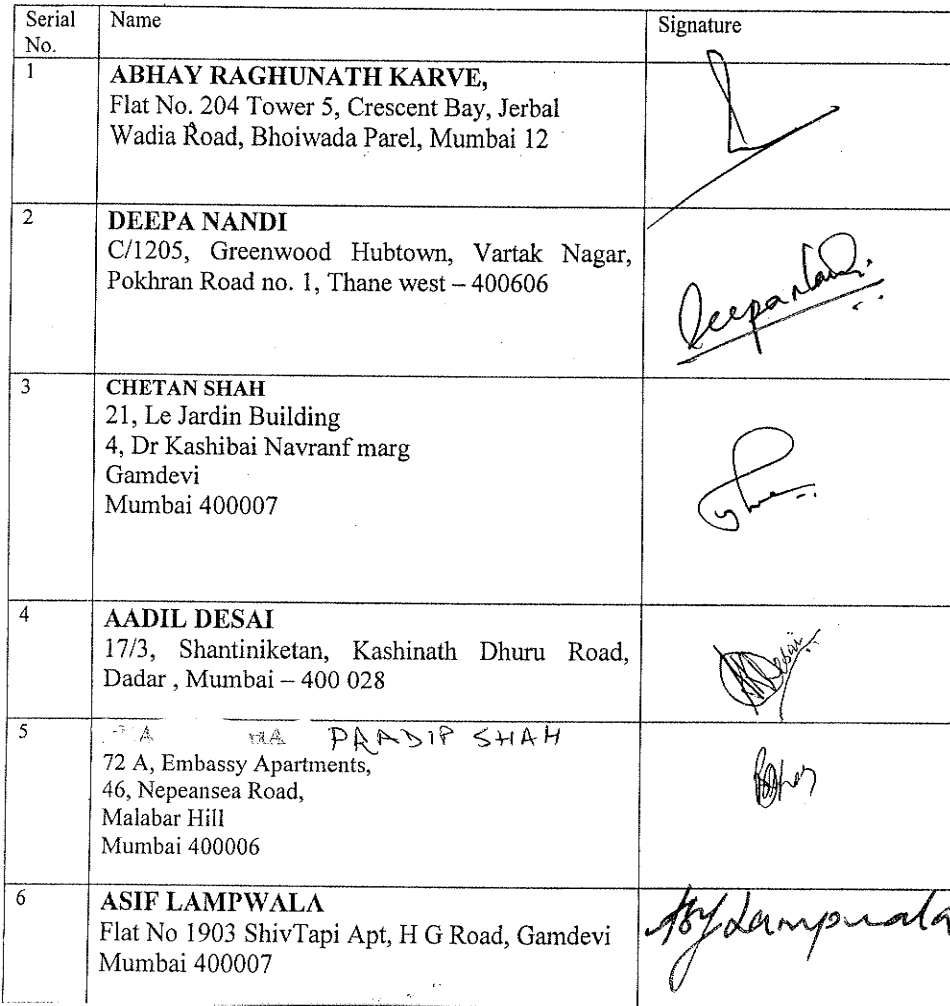 Serial No.
Name
Signature
1
ABHAY RAGHUNATH KARVE,
Flat No. 204 Tower 5, Crescent Bay, Jerbal
Wadia Road, Bhoiwada Parel, Mumbai 12
2
DEEPA NANDI
C/1205, Greenwood Hubtown, Vartak Nagar,
Pokhran Road no. 1, Thane west – 400606
Deepa Nandi
3
CHETAN SHAH
21, Le Jardin Building
4, Dr Kashibai Navranf marg
Gamdevi
Mumbai 400007
4
AADIL DESAI
17/3, Shantiniketan, Kashinath Dhuru Road,
Dadar , Mumbai – 400 028
Desai
5
PRADIP SHAH
72 A, Embassy Apartments,
46, Nepeansea Road,
Malabar Hill
Mumbai 400006
6
ASIF LAMPWALA
Flat No 1903 ShivTapi Apt, H G Road, Gamdevi
Mumbai 400007
Asif Lampwala